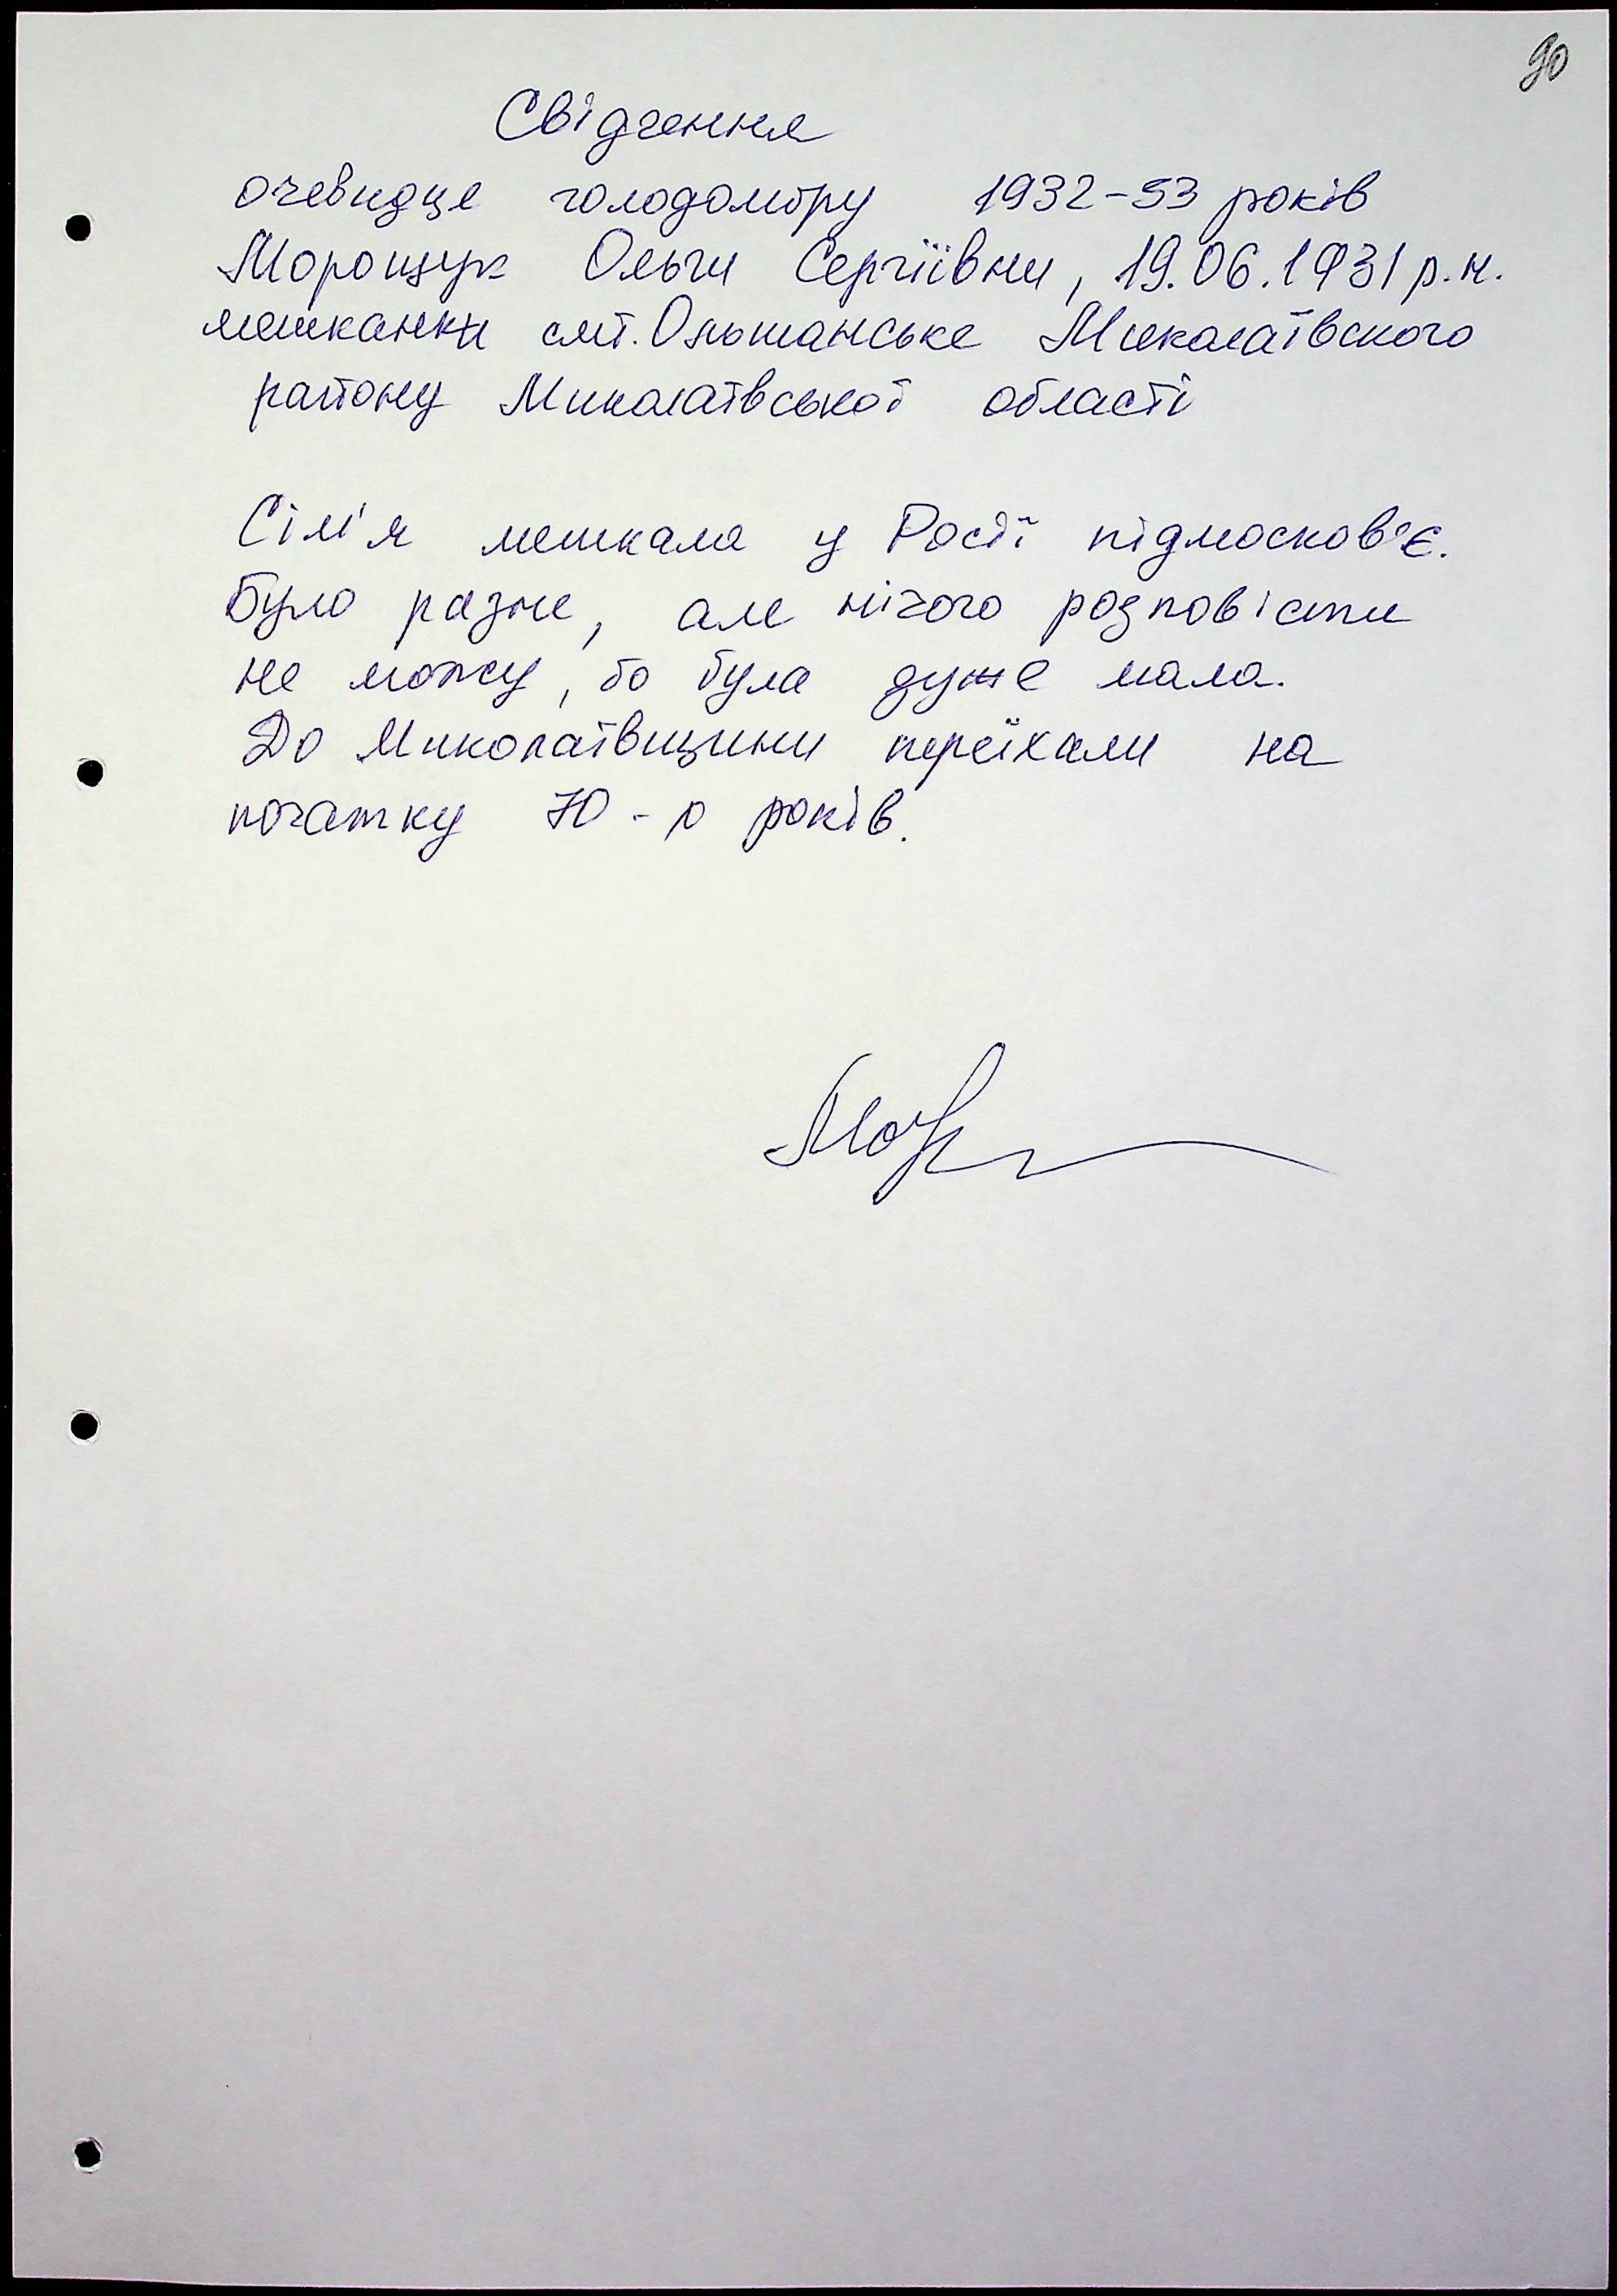 90
Свідчення
очевидця голодомору 1932-33 років
Морощук Ольги Сергіївни, 19.06.1931 р.н.
мешканки смт. Ольшанське Миколаївського
району Миколаївської області
Сім'я мешкала у Росії підмосков'є.
Було разне, але нічого розповісти
не можу, бо була дуже мала.
До Миколаївщини переїхали на
початку 70-р років.